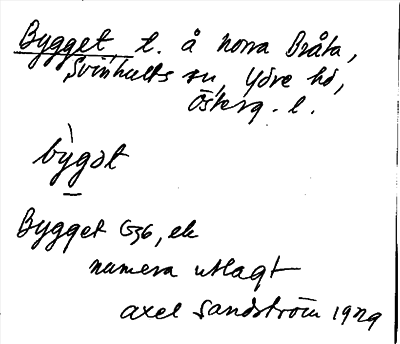 Bygget t. å norra Bråta,
Svinhults sn, Ydre hd,
Österg. l.
bỳgət
Bygget G36, ek
numera utlagt
Axel Sandström 1929